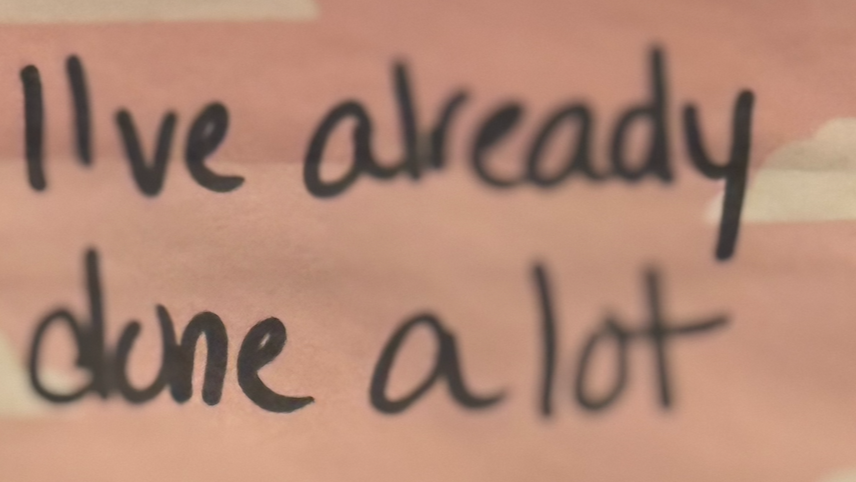 I've already
done a lot